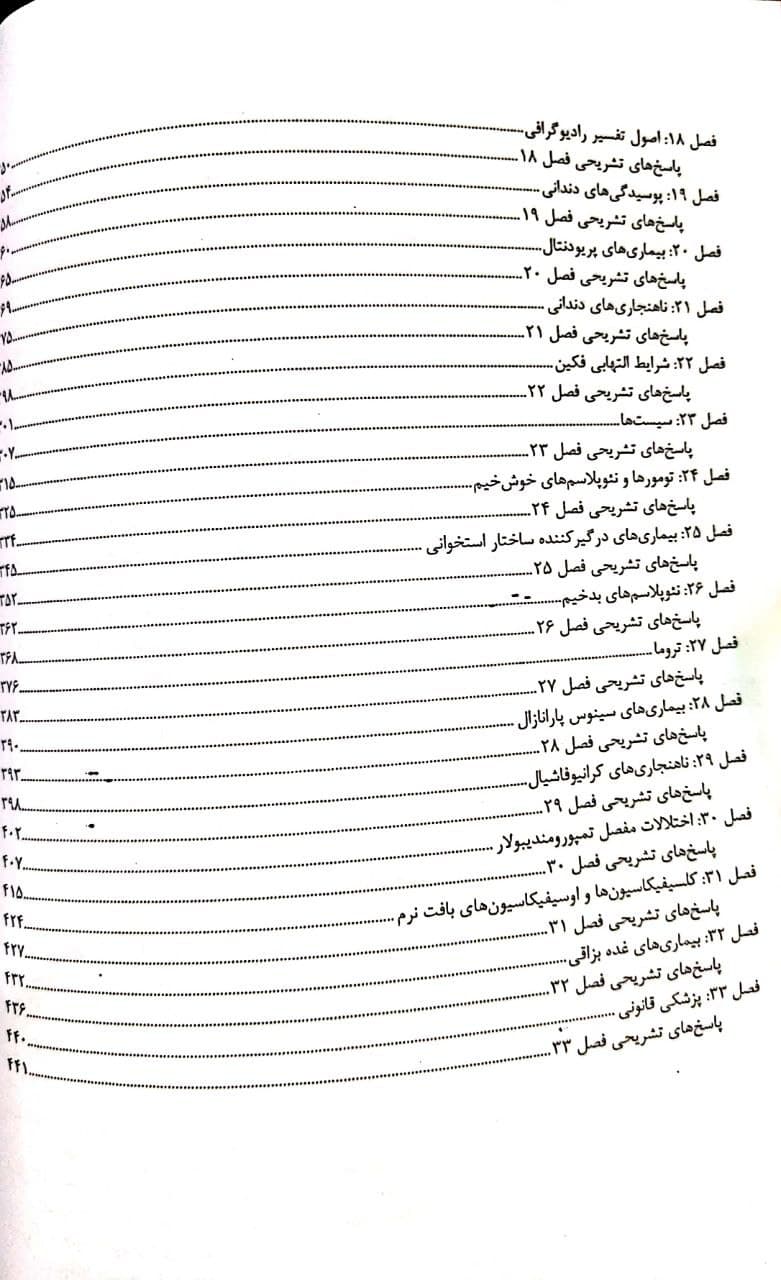 فصل ۱۸: اصول تفسیر رادیوگرافی......۵۰
پاسخ‌های تشریحی فصل ۱۸......۵۴
فصل ۱۹: پوسیدگی‌های دندانی......۵۸
پاسخ‌های تشریحی فصل ۱۹......۶۰
فصل ۲۰: بیماری‌های پریودنتال......۶۵
پاسخ‌های تشریحی فصل ۲۰......۶۹
فصل ۲۱: ناهنجاری‌های دندانی......۷۵
پاسخ‌های تشریحی فصل ۲۱......۸۵
فصل ۲۲: شرایط التهابی فکین......۹۸
پاسخ‌های تشریحی فصل ۲۲......۰۱
فصل ۲۳: سیست‌ها......۳۰۷
پاسخ‌های تشریحی فصل ۲۳......۳۱۵
فصل ۲۴: تومورها و نئوپلاسم‌های خوش‌خیم......۳۲۵
پاسخ‌های تشریحی فصل ۲۴......۳۳۴
فصل ۲۵: بیماری‌های درگیرکننده ساختار استخوانی......۳۴۵
پاسخ‌های تشریحی فصل ۲۵......۳۵۲
فصل ۲۶: نئوپلاسم‌های بدخیم......۳۶۲
پاسخ‌های تشریحی فصل ۲۶......۳۶۸
فصل ۲۷: تروما......۳۷۶
پاسخ‌های تشریحی فصل ۲۷......۳۸۳
فصل ۲۸: بیماری‌های سینوس پارانازال......۳۹۰
پاسخ‌های تشریحی فصل ۲۸......۳۹۳
فصل ۲۹: ناهنجاری‌های کرانیوفاشیال......۳۹۸
پاسخ‌های تشریحی فصل ۲۹......۴۰۲
فصل ۳۰: اختلالات مفصل تمپورومندیبولار......۴۰۷
پاسخ‌های تشریحی فصل ۳۰......۴۱۵
فصل ۳۱: کلسیفیکاسیون‌ها و اوسیفیکاسیون‌های بافت نرم......۴۲۴
پاسخ‌های تشریحی فصل ۳۱......۴۲۷
فصل ۳۲: بیماری‌های غده بزاقی......۴۳۲
پاسخ‌های تشریحی فصل ۳۲......۴۳۶
فصل ۳۳: پزشکی قانونی......۴۴۰
پاسخ‌های تشریحی فصل ۳۳......۴۴۱